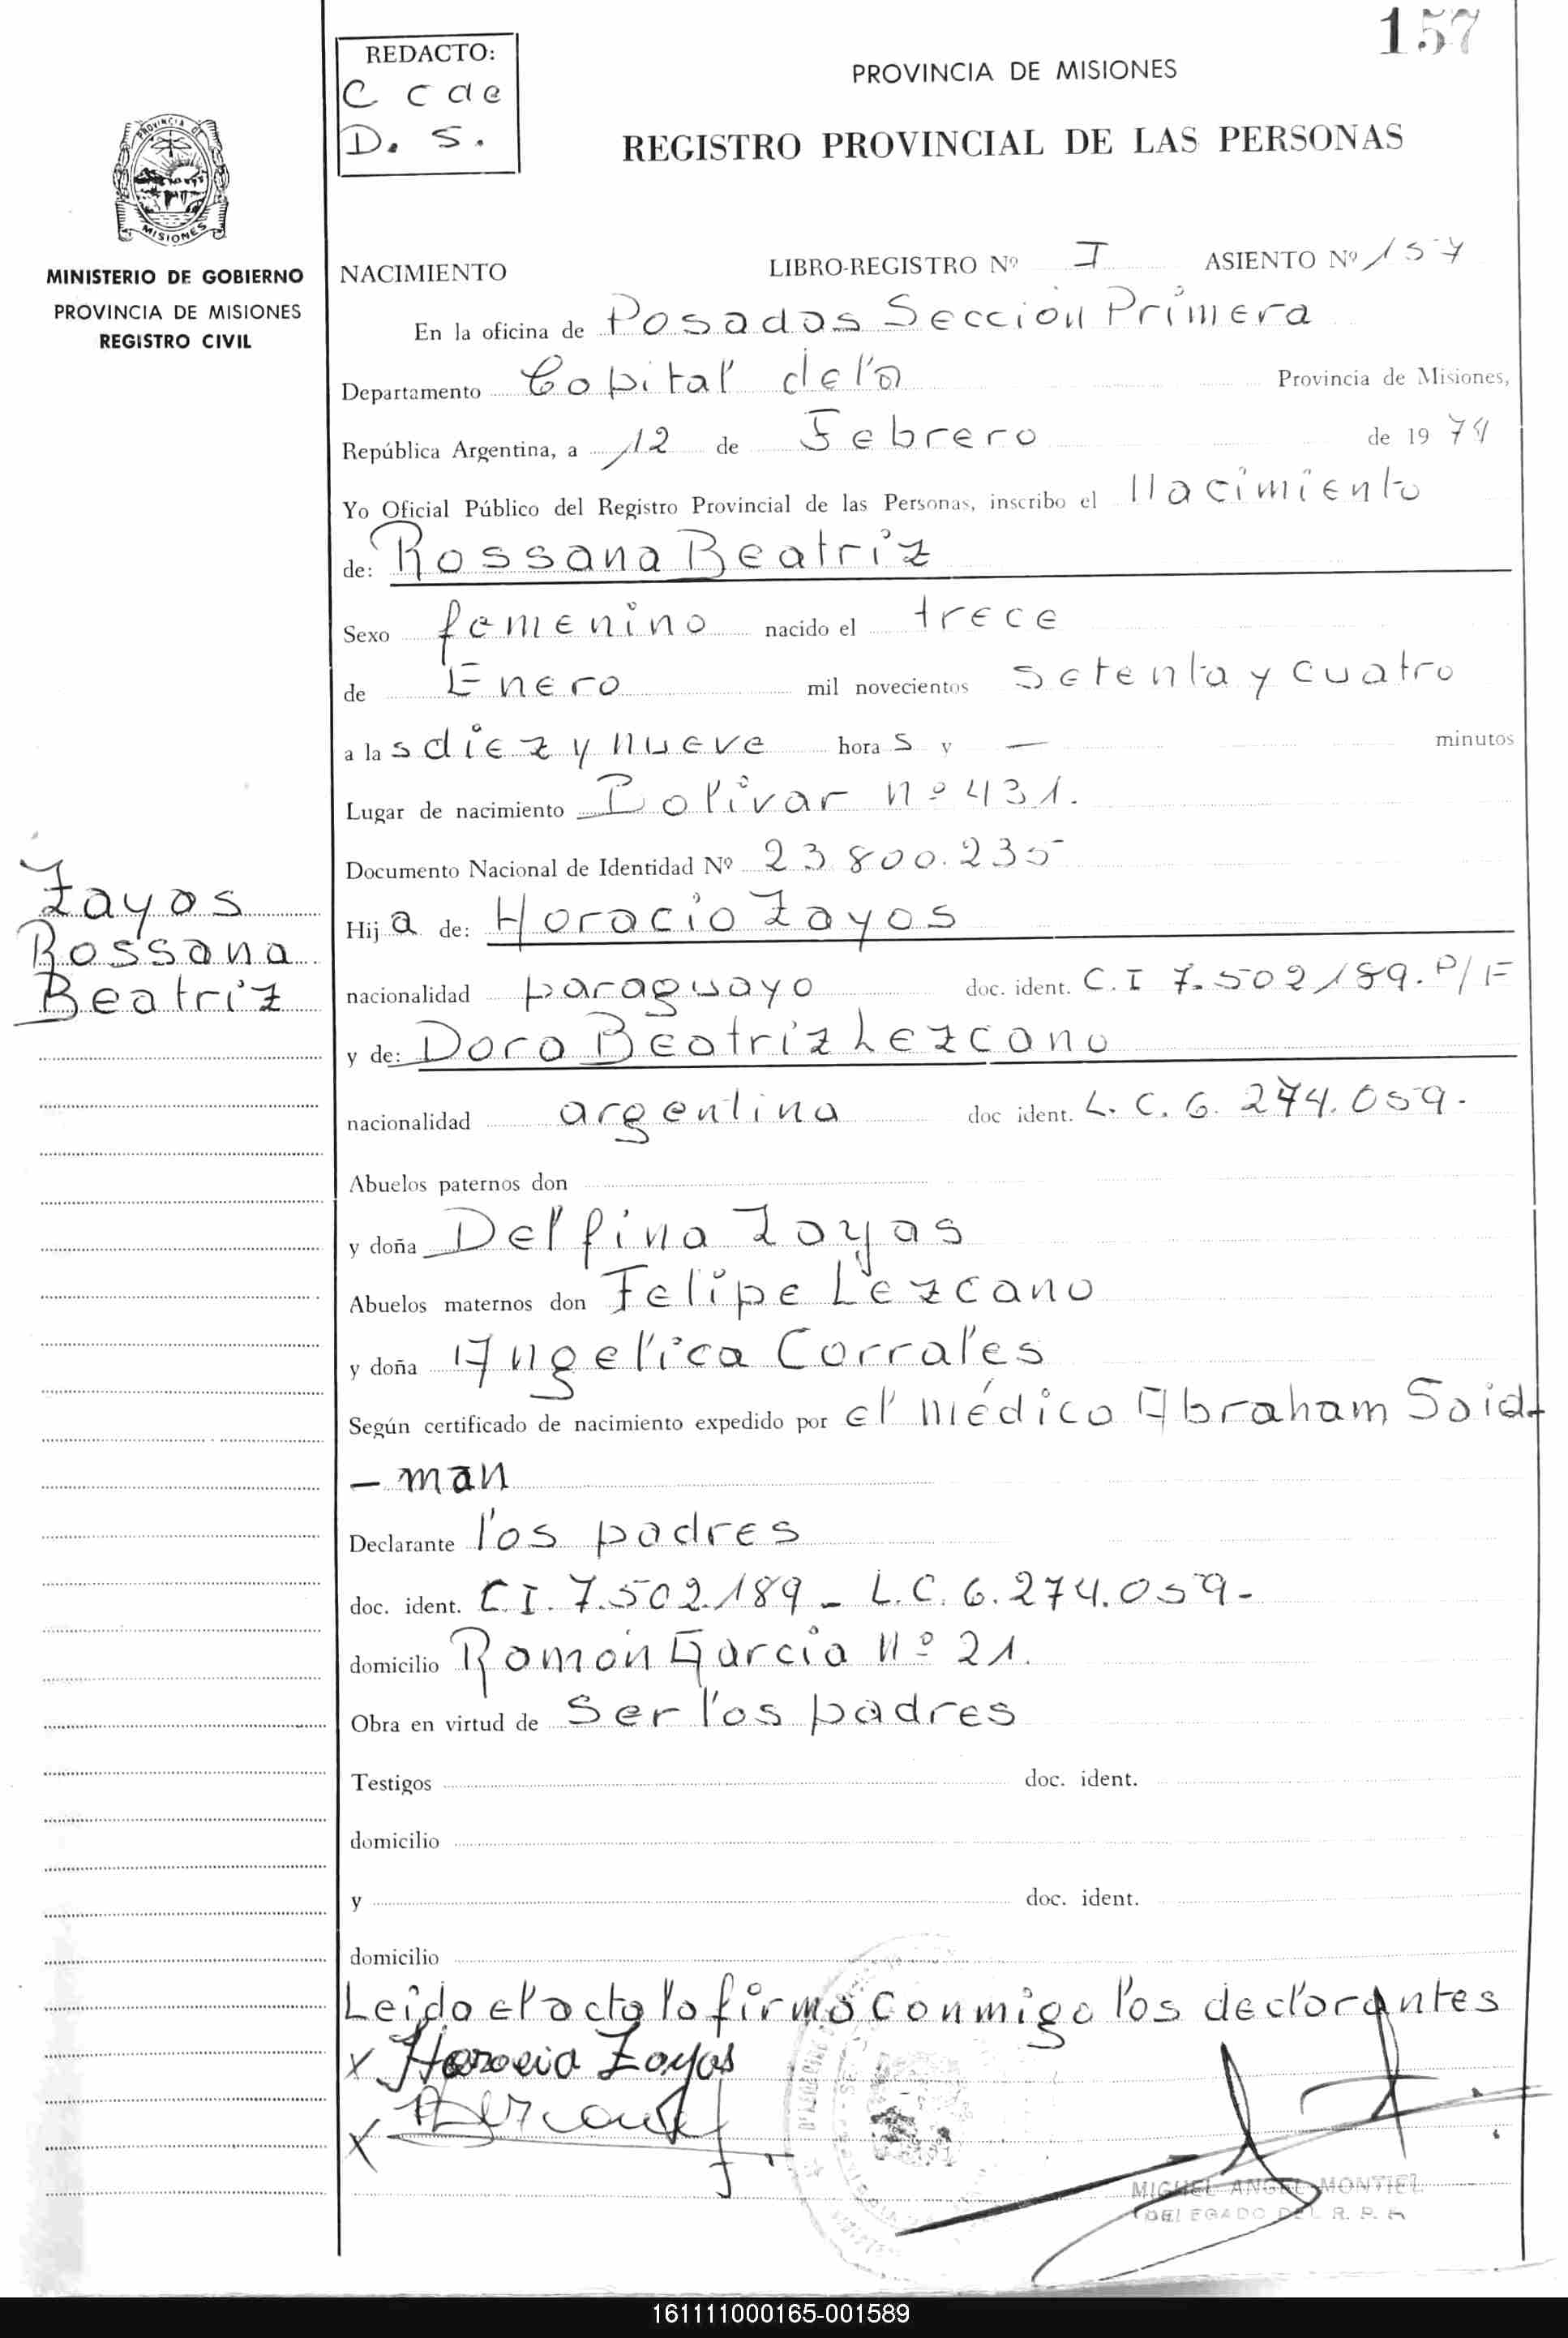 157
REDACTO:
C c de
D. S.
PROVINCIA DE MISIONES
REGISTRO PROVINCIAL DE LAS PERSONAS
PROVINCIA DE
MISIONES
MINISTERIO DE GOBIERNO
PROVINCIA DE MISIONES
REGISTRO CIVIL
NACIMIENTO LIBRO-REGISTRO Nº I ASIENTO Nº 157
En la oficina de Posadas Sección Primera
Departamento Capital de la Provincia de Misiones,
República Argentina, a 12 de Febrero de 1974
Yo Oficial Público del Registro Provincial de las Personas, inscribo el Nacimiento
de: Rossana Beatriz
Sexo femenino nacido el trece
de Enero mil novecientos setenta y cuatro
a las diez y nueve horas y — minutos
Lugar de nacimiento Bolivar nº 431.
Documento Nacional de Identidad Nº 23 800.235
Zayas
Rossana
Beatriz
Hija de: Horacio Zayas
nacionalidad paraguayo doc. ident. C.I 7.502189. P/F
y de: Dora Beatriz Lezcano
nacionalidad argentina doc ident. L. C. 6. 274.059.-
Abuelos paternos don
y doña Delfina Zayas
Abuelos maternos don Felipe Lezcano
y doña Angelica Corrales
Según certificado de nacimiento expedido por el médico Abraham Said
- man
Declarante los padres
doc. ident. C.I. 7.502.189 - L.C. 6.274.059-
domicilio Ramón Garcia Nº 21.
Obra en virtud de Ser los padres
Testigos doc. ident.
domicilio
y doc. ident.
domicilio
Leido el acta la firma conmigo los declarantes
x Horacio Zayas
x
MIGUEL ANGEL MONTIEL
DELEGADO DEL R. P. P.
161111000165-001589